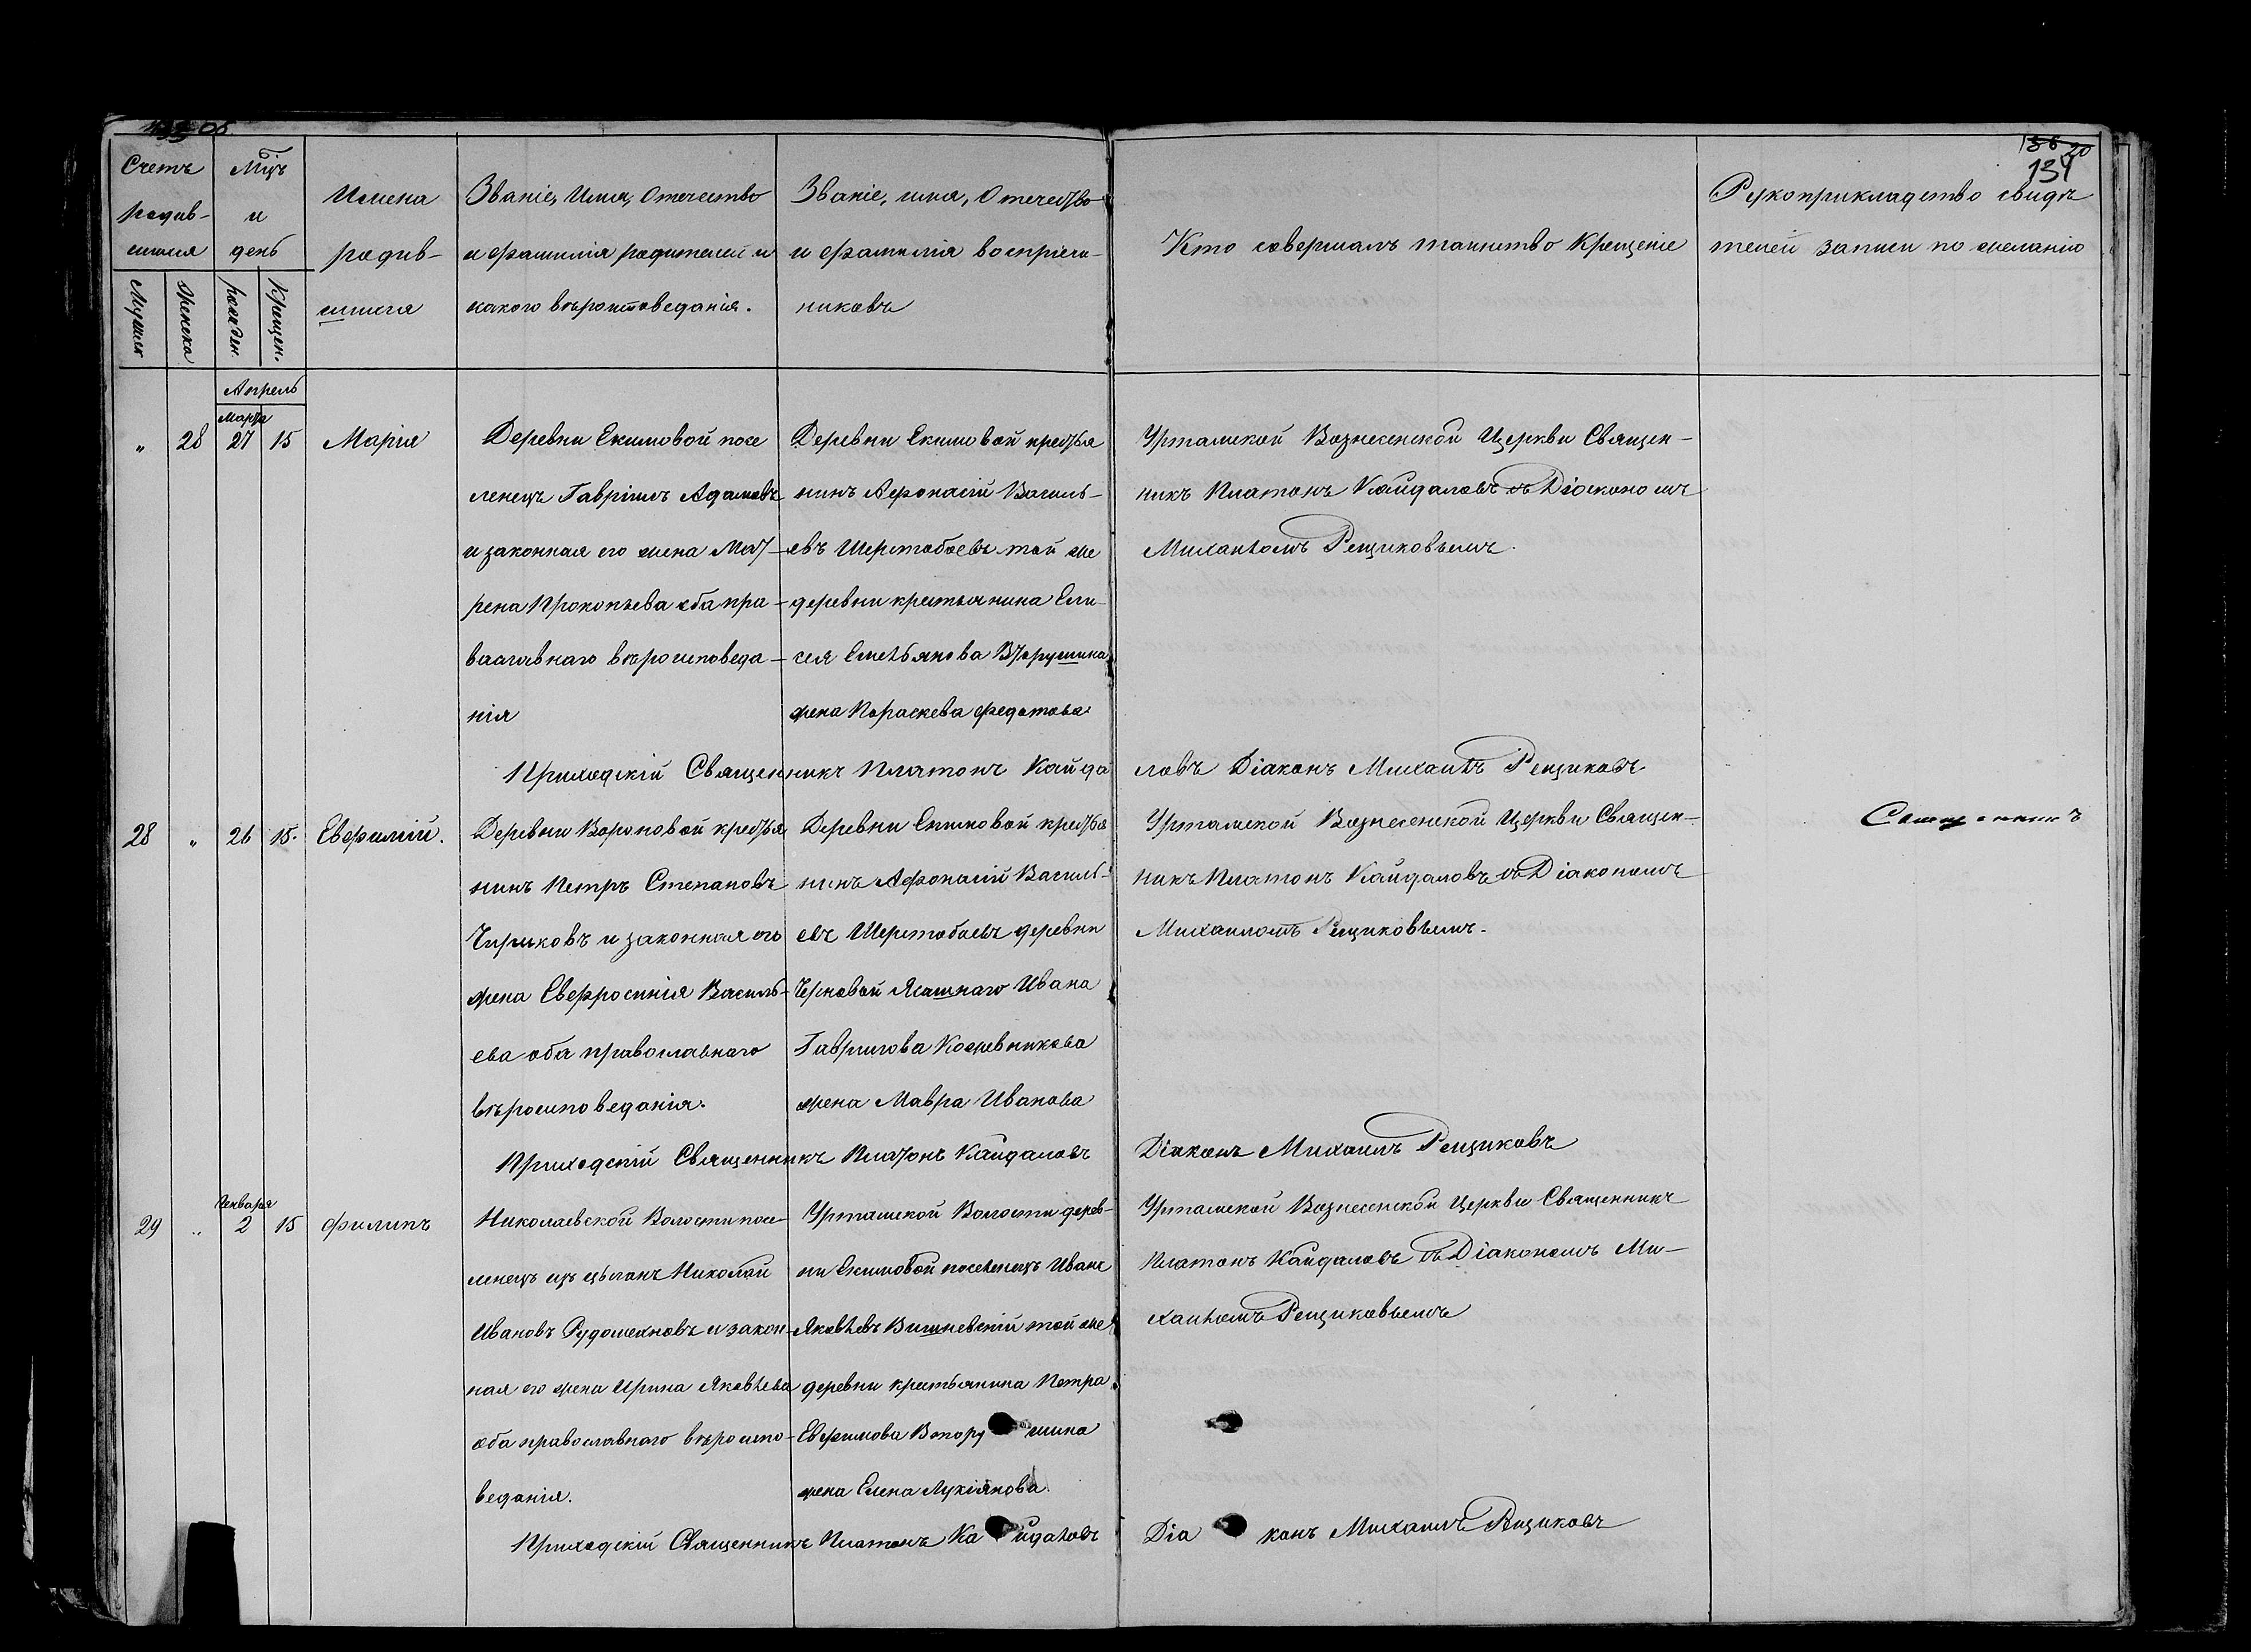 134
Счетъ родив-шихся
Мцъ и день
Имена родив-шихся
Званіе, Имя, Отчество и фамилія родителей и какого вѣроисповеданія.
Званіе, имя, Отечество и фамилія воспріем-никовъ
Кто совершалъ таинство Крещеніе
Рукоприкладство свидѣ
телей записи по желанію
Мужеск
Женска
рожден.
Крещен.
Апрель
Марта
„ 28 27 15 Марія
Деревни Екимовой посе
ленецъ Гавріилъ Адамовъ
и законная его жена Мат-
рена Прокопьева оба пра-
вославнаго вѣроисповеда-
нія
Деревни Екимовой крестья
нинъ Афонасій Василь-
евъ Шерстобоевъ той же
деревни крестьянина Ели-
сея Емельянова Вторушина
жена Пораскева Федотова
Урташской Вознесенской Церкви Священ-
никъ Платонъ Кайдаловъ съ Діакономъ
Михаиломъ Рещиковымъ.
Приходскій Священникъ Платонъ Кайда
ловъ Діаконъ Михаилъ Рещиковъ
28 „ 26 15. Евфимій.
Деревни Вороновой крестья
нинъ Петръ Степановъ
Чириковъ и законная его
жена Евфросинія Василь-
ева оба православнаго
вѣроисповеданія.
Деревни Екимовой крестья
нинъ Афонасій Василь-
евъ Шерстобоевъ деревни
Черновой Ясашнаго Ивана
Гаврилова Кожевникова
жена Мавра Иванова
Урташской Вознесенской Церкви Священ-
никъ Платонъ Кайдаловъ съ Діакономъ
Михаиломъ Рещиковымъ.
Священникъ
Приходскій Священникъ Платонъ Кайдаловъ
Діаконъ Михаилъ Рещиковъ
Января
29 „ 2 15 Филипъ
Николаевской Волости посе-
ленецъ изъ цыганъ Николай
Ивановъ и закон-
ная его жена Ирина Яковлева
оба православнаго вѣроиспо-
веданія.
Урташской Волости дерев-
ни Екимовой поселенецъ Иванъ
Яковлевъ Вишневскій той же
деревни крестьянина Петра
Евфимова Вторушина
жена Елена Лукіянова.
Урташской Вознесенской Церкви Священникъ
Платонъ Кайдаловъ съ Діакономъ Ми-
хаиломъ Рещиковымъ
Приходскій Священникъ Платонъ Кайдаловъ
Діаконъ Михаилъ Рещиковъ